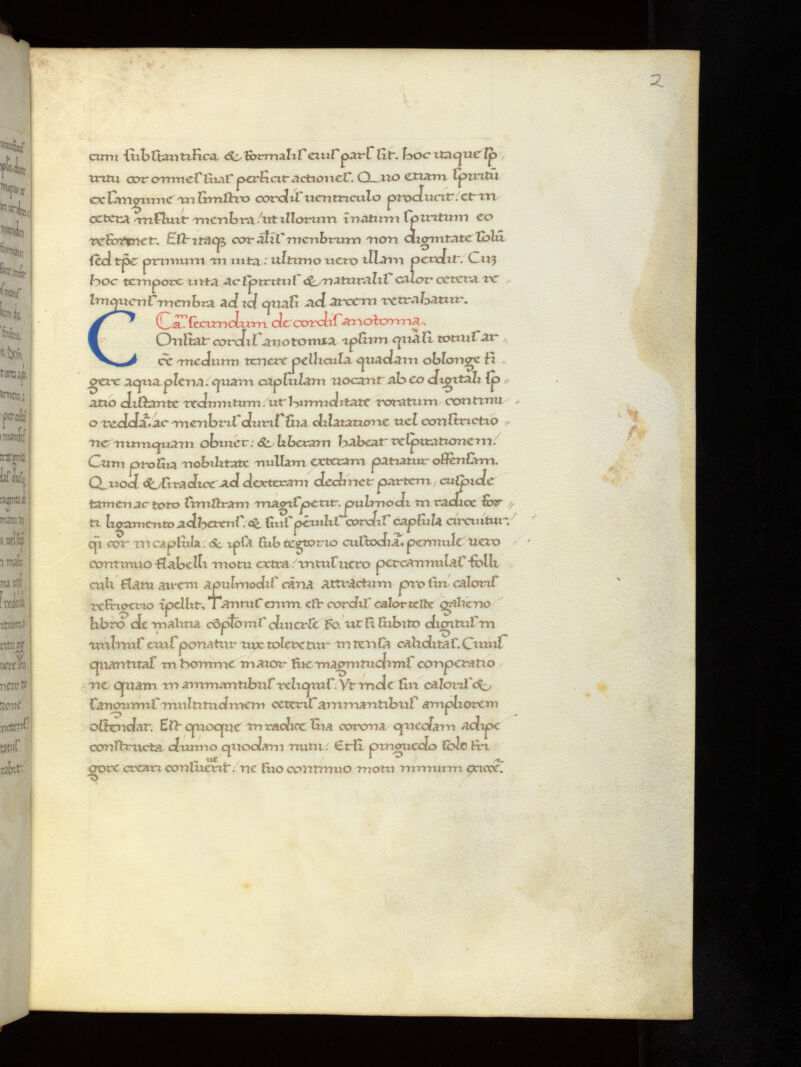 2
cum substantifica & formalis eius pars sit. hoc itaque sp
iritu cor omnes suas perficit actiones. Quo etiam spiritū
ex sanguine in sinistro cordis uentriculo producit. et in
cetera influit menbra. ut illorum īnatum spiritum eo
reformet. Est itaqȝ cor āl'is menbrum non dignitate solū
sed tp̄e primum in uita: ultimo uero illam perdit. Cuȝ
hoc tempore uita ac spiritus & naturalis calor cetera re
linquens menbra ad id quasi ad arcem retrahatur.
Cam̄. secundum de cordis anotomia.
Constat cordis anotomia ipsum quāsi totius ar
cē medium tenere pellicula quadam oblonge fi
gere aqua plena. quam capsulam uocant ab eo digitali sp
atio distante redimitum. ut humiditate roratum continu
o reddāt. ac menbris duris sua dilatatione uel constrictio
ne nunquam obuiet: & liberam habeat respirationem.
Cum pro sua nobilitate nullam exteram patiatur offensam.
Quod & si radice ad dexteram declinet partem, cuspide
tamen ac toto sinistram magis petit. pulmodi in radice for
ti ligamento adherens. & suis cordis capsula circuitur.
qī cor in capsula. & ipsa sub tegtorio custodiāt. penule uero
continuo flabelli motu extra. intus uero per cannulas folli
culi flatu airem apulmodis cāna attractum pro sui caloris
refrigerio īpellit. Tantus enim est cordis calor teste galieno
libro de malitia cōpl'onis diuerse fo. ut si subito digitus in
uulnus eius ponatur uix toleretur intensa caliditas. Cuius
quantitas in homine maior sue magnitudinis conperatio
ne quam in animantibus reliquis. Vt inde sui caloris &
sanguinis multitudinem ceteris animantibus ampliorem
ostendat. Est quoque in radice sua corona quedam adipe
constructa diuino quodam nutu. Et si pinguedo solo fri
gore creari consueuerit. ne suo continuo motu nimium